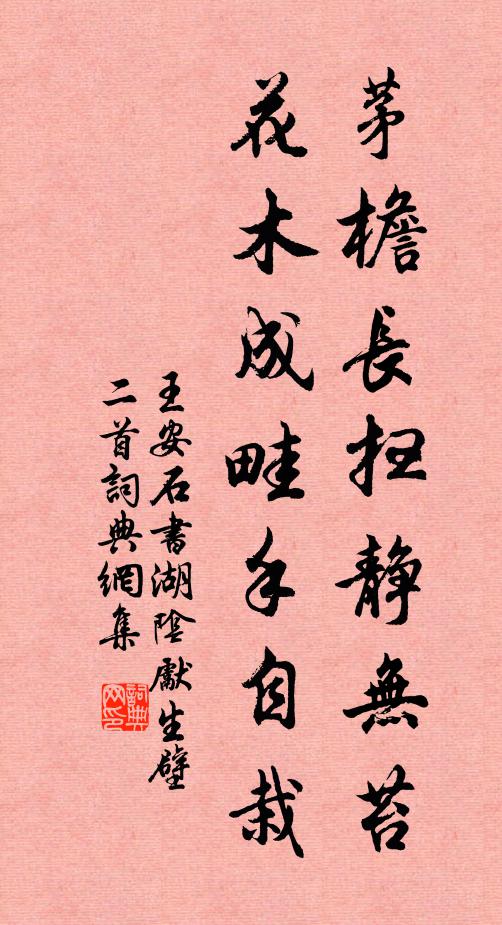 茅檐長扫静無苔
花木成畦手自栽
王安石書湖陰獻生壁
二首詞典網集
詞典
网印